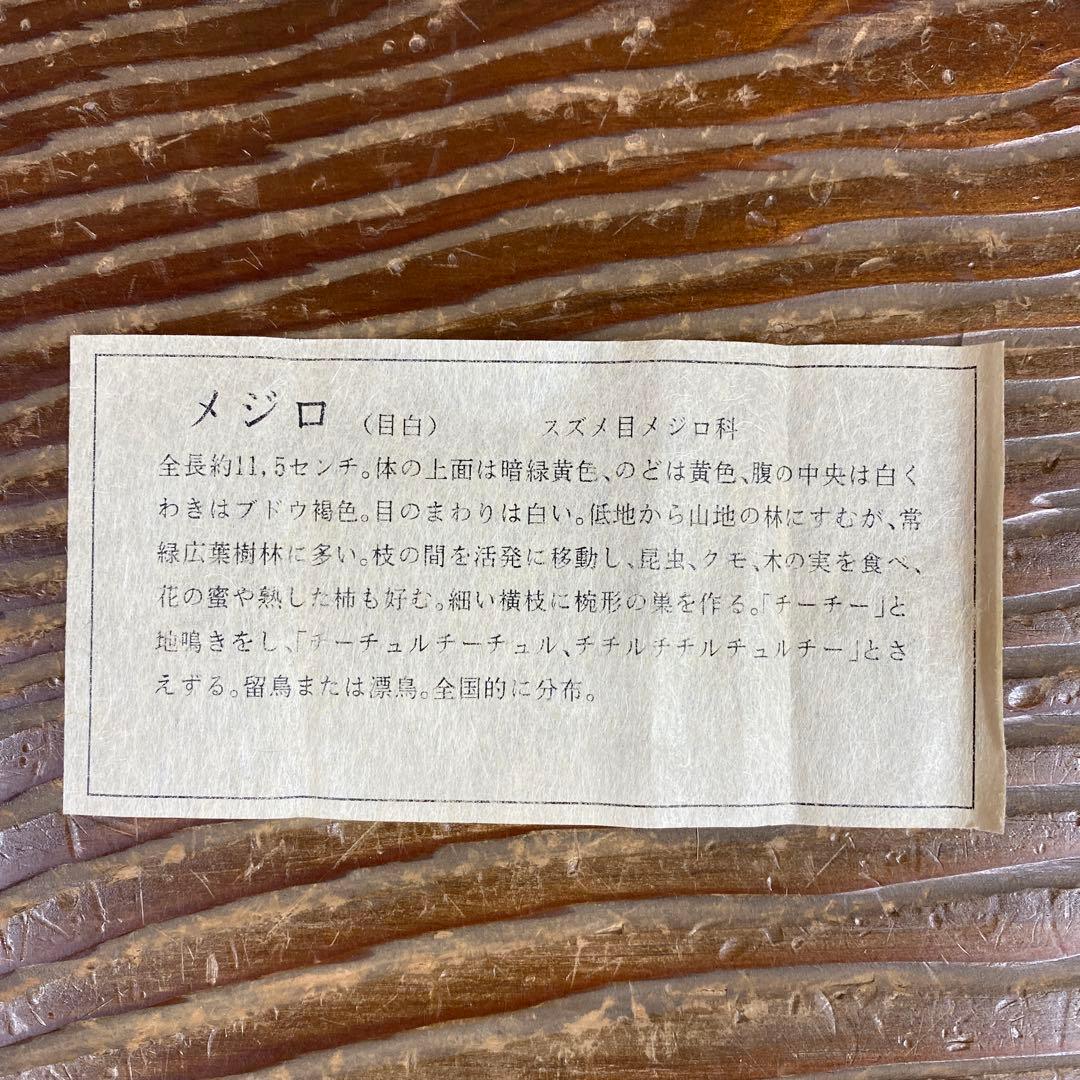 メジロ （目白） スズメ目メジロ科
全長約11,5センチ。体の上面は暗緑黄色、のどは黄色、腹の中央は白く
わきはブドウ褐色。目のまわりは白い。低地から山地の林にすむが、常
緑広葉樹林に多い。枝の間を活発に移動し、昆虫、クモ、木の実を食べ、
花の蜜や熟した柿も好む。細い横枝に椀形の巣を作る。「チーチー」と
地鳴きをし、「チーチュルチーチュル、チチルチチルチュルチー」とさ
えずる。留鳥または漂鳥。全国的に分布。